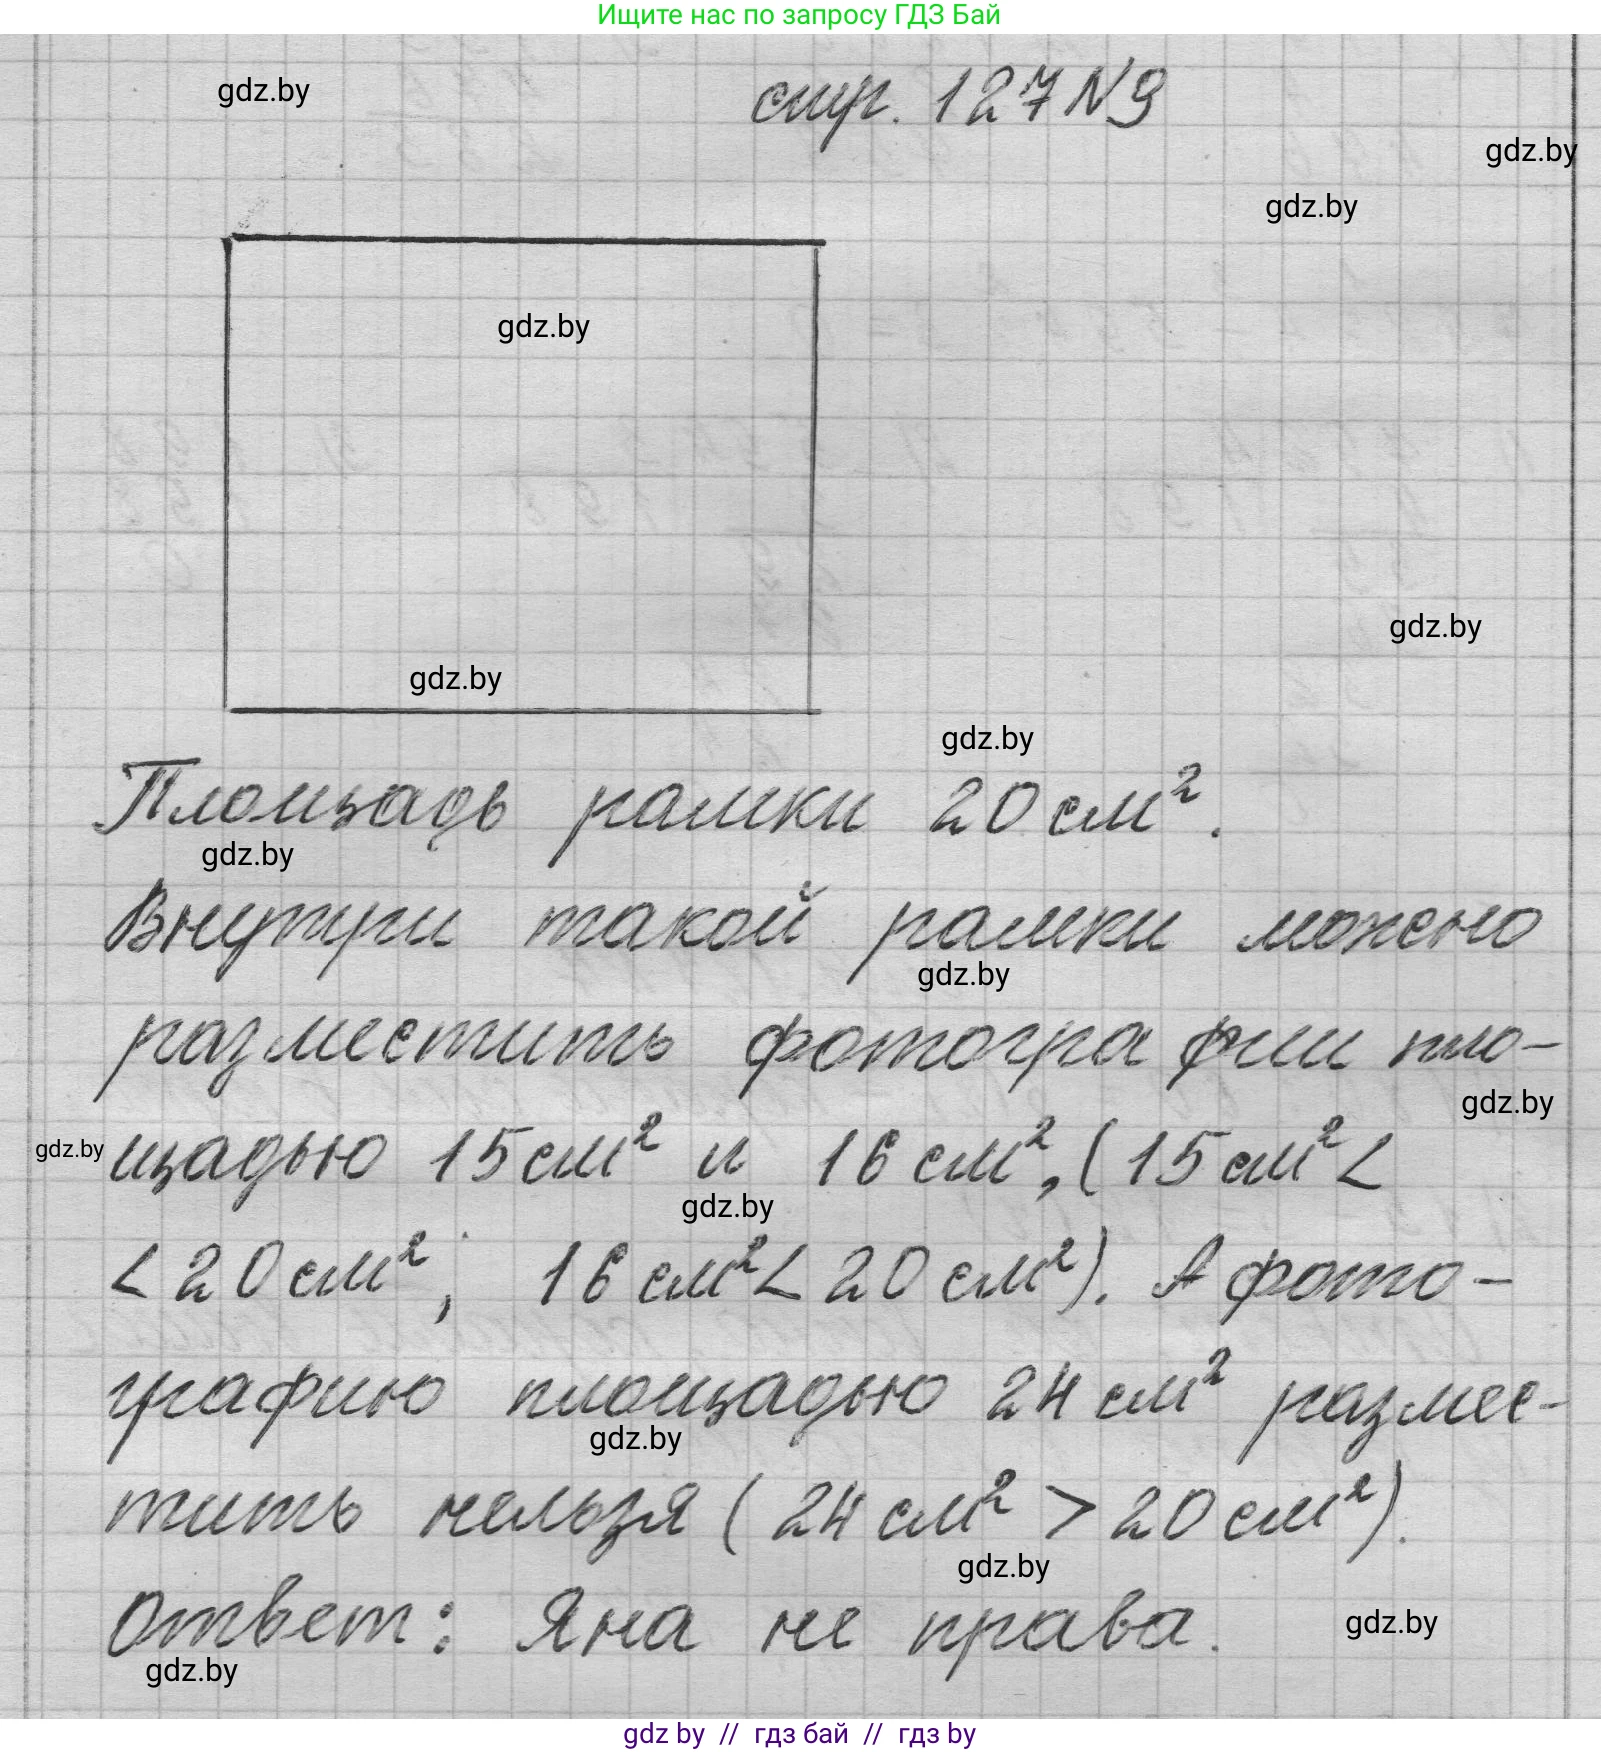 Ищите нас по запросу ГДЗ Бай
gdz.by
стр. 127 N9
gdz.by
gdz.by
gdz.by
gdz.by
gdz.by
gdz.by
Площадь рамки 20 см².
gdz.by
Внутри такой рамки можно
gdz.by
разместить фотографии пло-
gdz.by
gdz.by
щадью 15 см² и 16 см², (15 см² <
gdz.by
< 20 см²; 16 см² < 20 см²). А фото-
графию площадью 24 см² размес-
gdz.by
тить нельзя (24 см² > 20 см²).
gdz.by
Ответ: Яна не права.
gdz.by
gdz.by
gdz by // гдз бай // гдз by